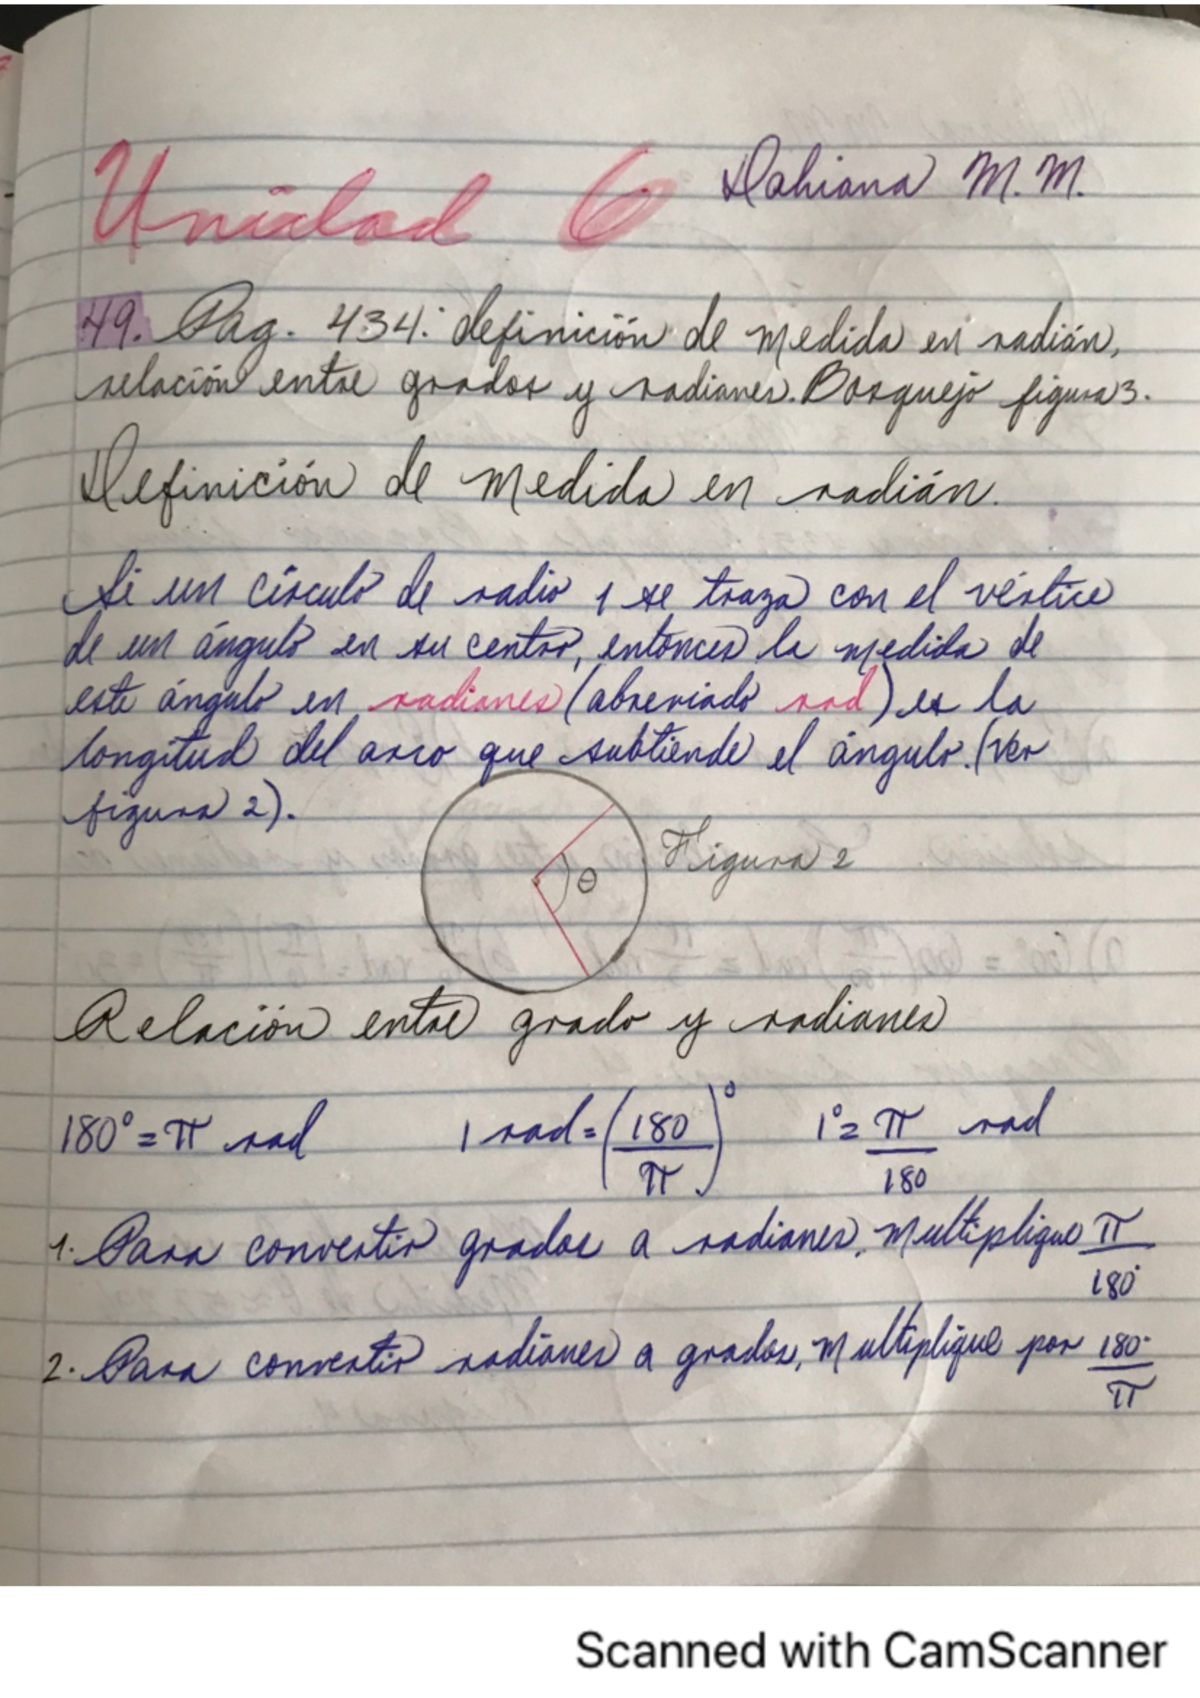 Unidad 6 Dahiana M.M.
49. Pag. 434: definición de medida en radián,
relación entre grados y radianes. Bosquejo figura 3.
Definición de medida en radián.
Si un círculo de radio 1 se traza con el vértice
de un ángulo en su centro, entonces la medida de
este ángulo en radianes (abreviado rad) es la
longitud del arco que subtiende el ángulo. (Ver
figura 2).
Figura 2
θ
Relación entre grado y radianes
180° = π rad 1 rad = (180/π)° 1° = π/180 rad
1. Para convertir grados a radianes, multiplique π/180°
2. Para convertir radianes a grados, multiplique por 180°/π
Scanned with CamScanner